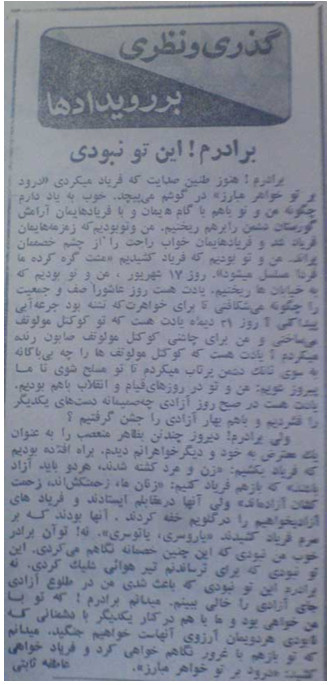 گذری و نظری
بر رویدادها
برادرم! این تو نبودی
برادرم! هنوز طنین صدایت که فریاد میکردی «درود
بر تو خواهر مبارز» در گوشم می‌پیچد. خوب به یاد دارم
چگونه من و تو باهم با گام هایمان و با فریادهایمان آرامش
گورستان دشمن رابرهم ریختیم. من وتوبودیم که زمزمه‌هایمان
فریاد شد و فریادهایمان خواب راحت را از چشم خصمان
پراند. من و تو بودیم که فریاد کشیدیم «مشت گره کرده ما
فردا مسلسل میشود». روز ۱۷ شهریور ، من و تو بودیم که
به خیابان ها ریختیم. یادت هست روز عاشورا صف و جمعیت
را چگونه می‌شکافتی تا برای خواهرت که تشنه بود جرعه‌آبی
پیداکنی؟ روز ۲۱ دیماه یادت هست که تو کوکتل مولوتف
می‌ساختی و من برای چاشنی کوکتل مولوتف صابون رنده
میکردم؟ یادت هست که کوکتل مولوتف ها را چه بی‌باکانه
به سوی تانك دشمن پرتاب میکردم تا تو مسلح شوی تا ما
پیروز شویم: من و تو در روزهای‌قیام و انقلاب باهم بودیم.
یادت هست در صبح روز آزادی چه‌صمیمانه دست‌های یکدیگر
را فشردیم و باهم بهار آزادی را جشن گرفتیم ؟
ولی برادرم! دیروز چندتن بظاهر متعصب را به عنوان
یك معترض به خود و دیگرخواهرانم دیدم. براه افتاده بودیم
که فریاد بکشیم: «زن و مرد کشته شدند، هردو باید آزاد
باشند» که بازهم فریاد کنیم: «زنان ما، زحمتکش‌اند، زحمت
کشان آزاده‌اند»، ولی آنها درمقابلم ایستادند و فریاد های
آزادیخواهیم را درگلویم خفه کردند . آنها بودند که بر
سرم فریاد کشیدند «یاروسری، یاتوسری». نه! توآن برادر
خوب من نبودی که این چنین خصمانه نگاهم می‌کردی. این
تو نبودی که برای ترساندنم تیر هوائی شلیك کردی. نه
برادرم این تو نبودی که باعث شدی من در طلوع آزادی
جای آزادی را خالی ببینم. میدانم برادرم ! که تو با
من خواهی بود و ما با هم در کنار یکدیگر با دشمنانی که
نابودی هردویمان آرزوی آنهاست خواهیم جنگید. میدانم
که تو بازهم با غرور نگاهم خواهی کرد و فریاد خواهی
کشید: «درود بر تو خواهر مبارز».
عاطفه ثابتی